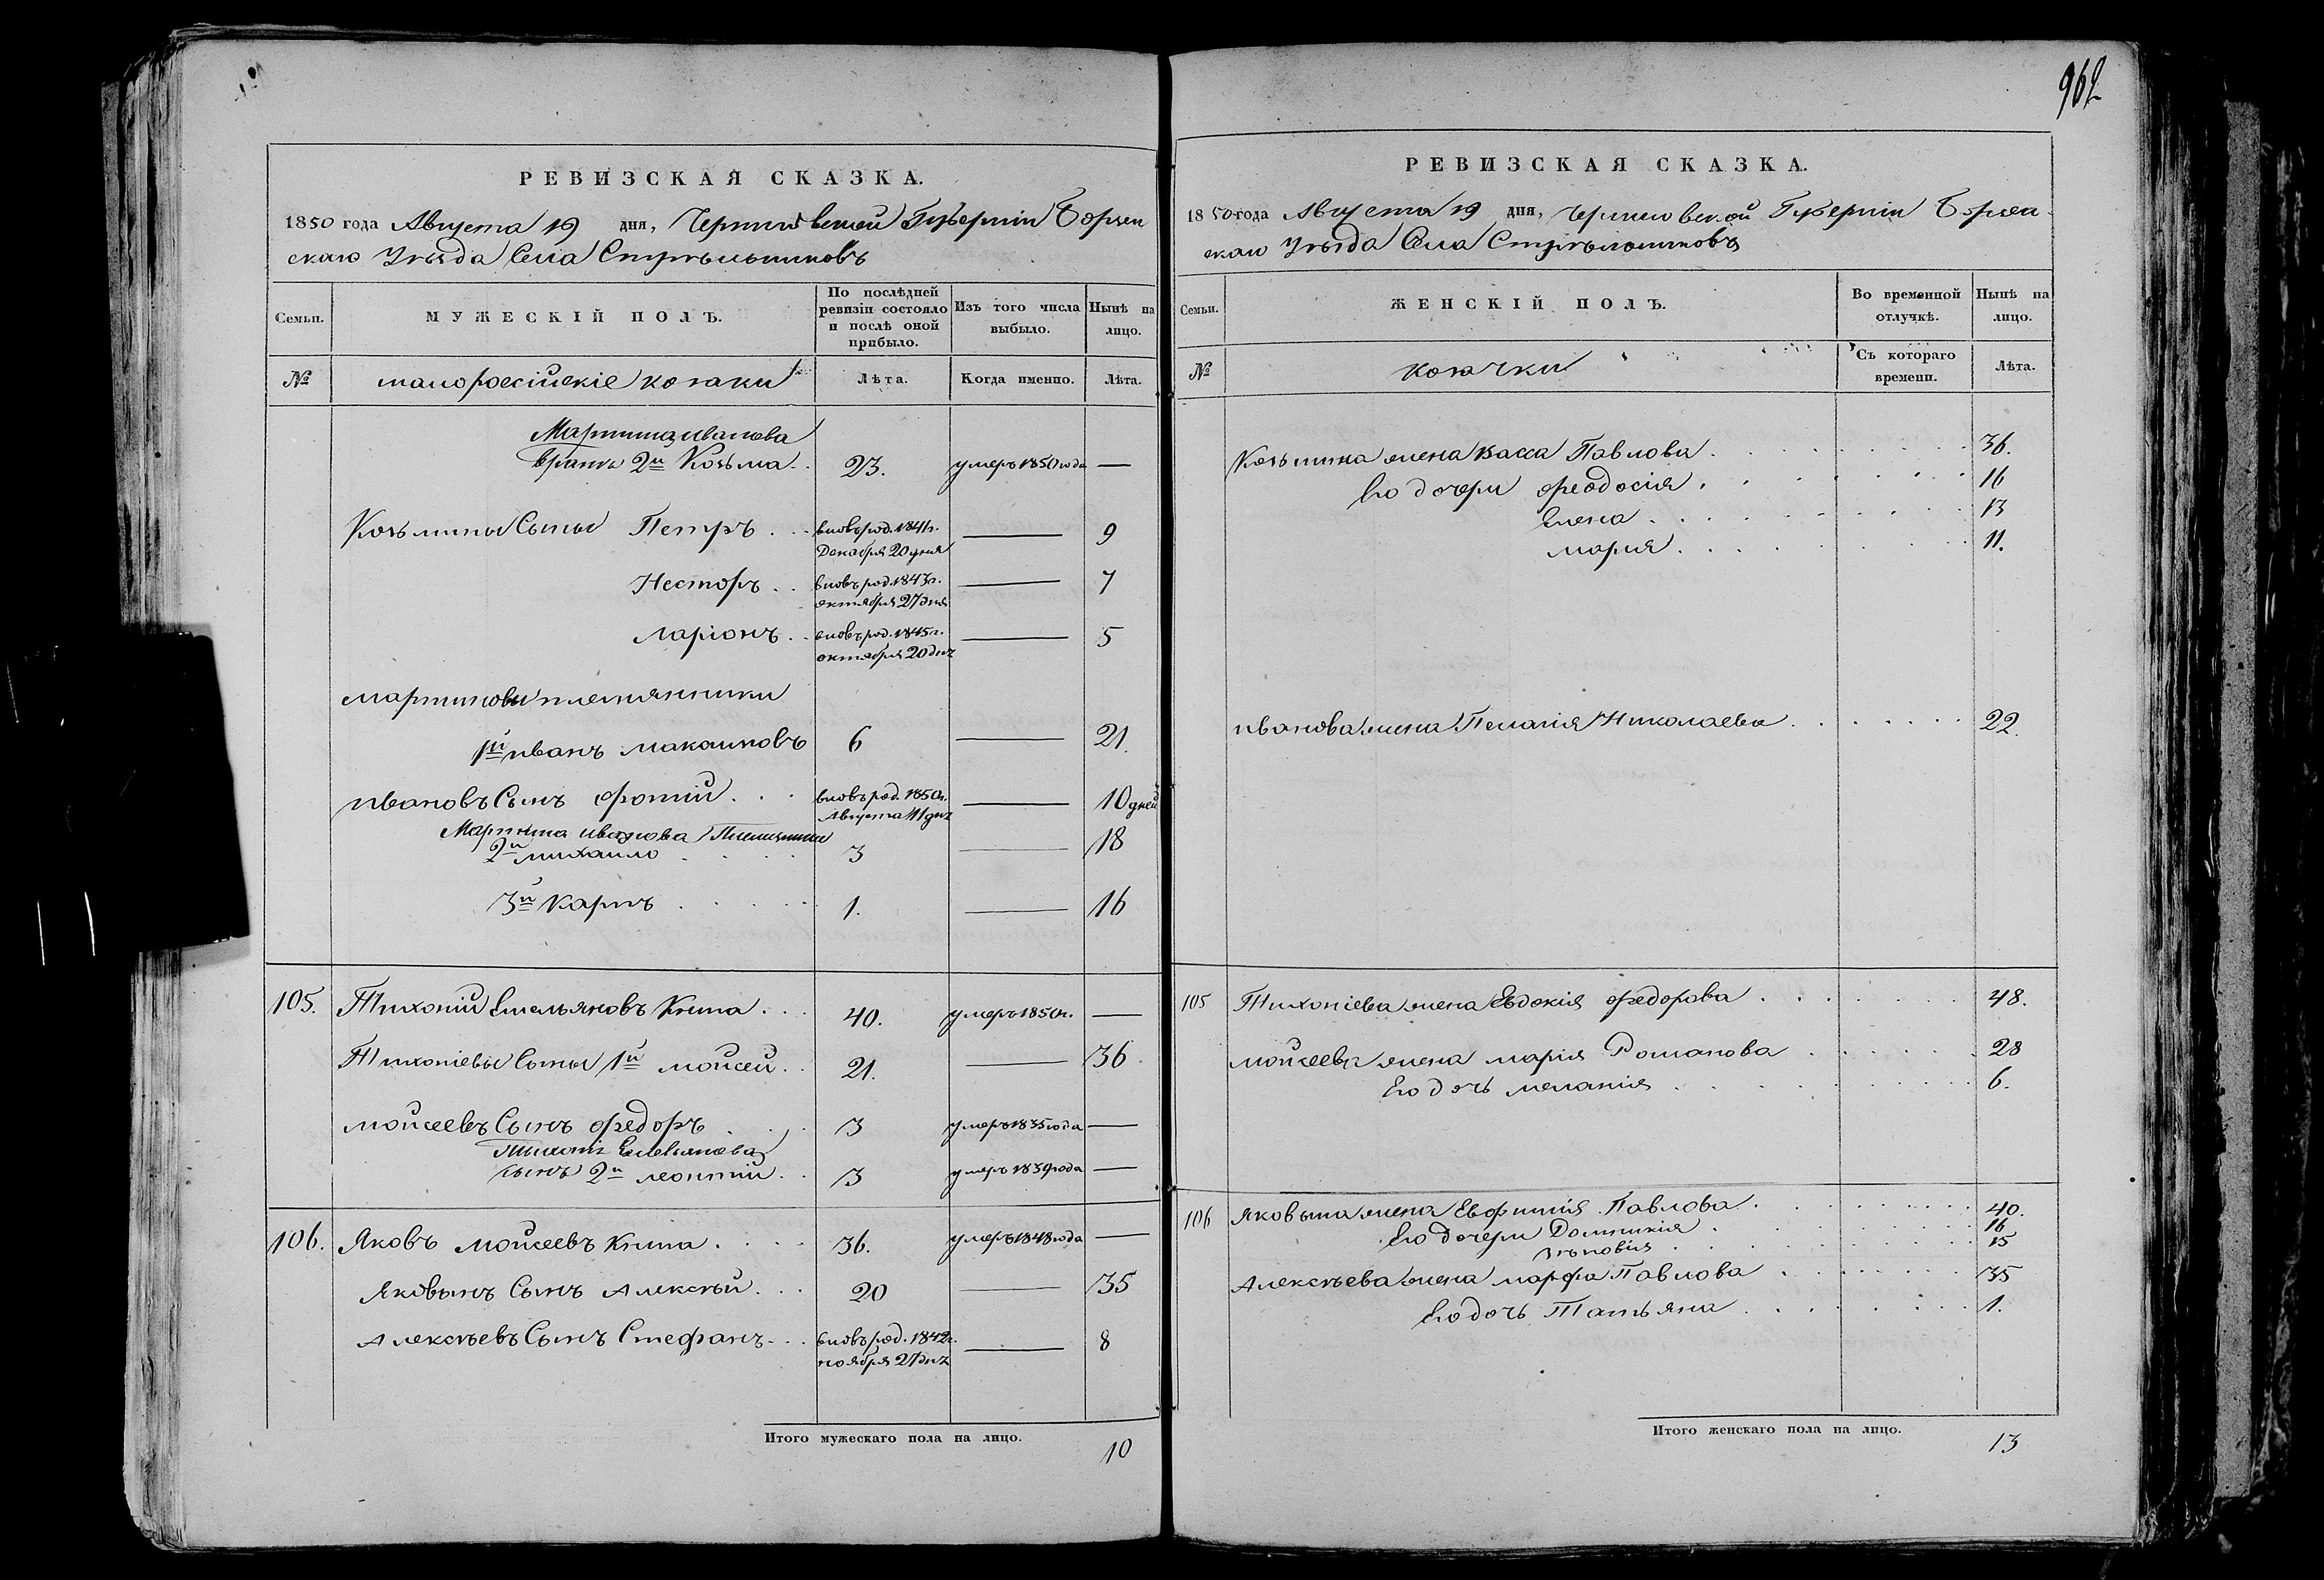 962
РЕВИЗСКАЯ СКАЗКА.
1850 года Августа 19 дня, Черниговской Губерніи Борзен
скаго Уѣзда Села Стрѣльниковъ
Семьи.
МУЖЕСКІЙ ПОЛЪ.
По послѣдней ревизіи состояло и послѣ оной прибыло.
Изъ того числа выбыло.
Нынѣ на лицо.
№
малороссійскіе козаки
Лѣта.
Когда именно.
Лѣта.
Мартина Иванова
братъ 2й Козьма 23. умеръ 1850 года —
Козьмины Сыны Петръ вновь род. 1841 г. — 9
Декабря 20 дня
Несторъ вновь род. 1843 г. — 7
октября 27 дня
Ларіонъ вновь род. 1845 г. — 5
октября 20 дня
Мартиновы племянники
1й Иванъ Максимовъ 6 — 21.
Ивановъ Сынъ Фотий вновь род. 1850 г. — 10 дней
Августа 11 дня
Мартина Иванова Племянники
2й михаило 3 — 18
3й Карпъ 1. — 16
105. Тихоній Емельяновъ 40. умеръ 1850 г. —
Тихоніевы Сыны 1й моисей 21. — 36
моисеевъ Сынъ Федоръ 3 умеръ 1835 года —
Тихонія Емельянова
сынъ 2й леонтий 3 умеръ 1839 года —
106. Яковъ Моисеевъ 36. умеръ 1848 года —
Яковынъ Сынъ Алексѣй 20 — 35
Алексѣевъ Сынъ Стефанъ вновь род. 1842 г. — 8
ноября 27 дня
Итого мужескаго пола на лицо. 10
РЕВИЗСКАЯ СКАЗКА.
1850 года Августа 19 дня, Черниговской Губерніи Борзен
скаго Уѣзда Села Стрѣльниковъ
Семьи.
ЖЕНСКІЙ ПОЛЪ.
Во временной отлучкѣ.
Нынѣ на лицо.
№
козачки
Съ котораго времени.
Лѣта.
Козьмина жена Васса Павлова 36.
Его дочери Феодосія 16
Елена 13
Марія 11.
Иванова жена Пелагія Николаева 22.
105 Тихоніева жена Евдокія Федорова 48.
Моисеева жена Марія Романова 28
Его дочь Меланія 6.
106 Яковына жена Евфимія Павлова 40.
Его дочери Домникія 16
Зѣновія 15
Алексѣева жена Марфа Павлова 35
Его дочь Татьяна 1.
Итого женскаго пола на лицо. 13